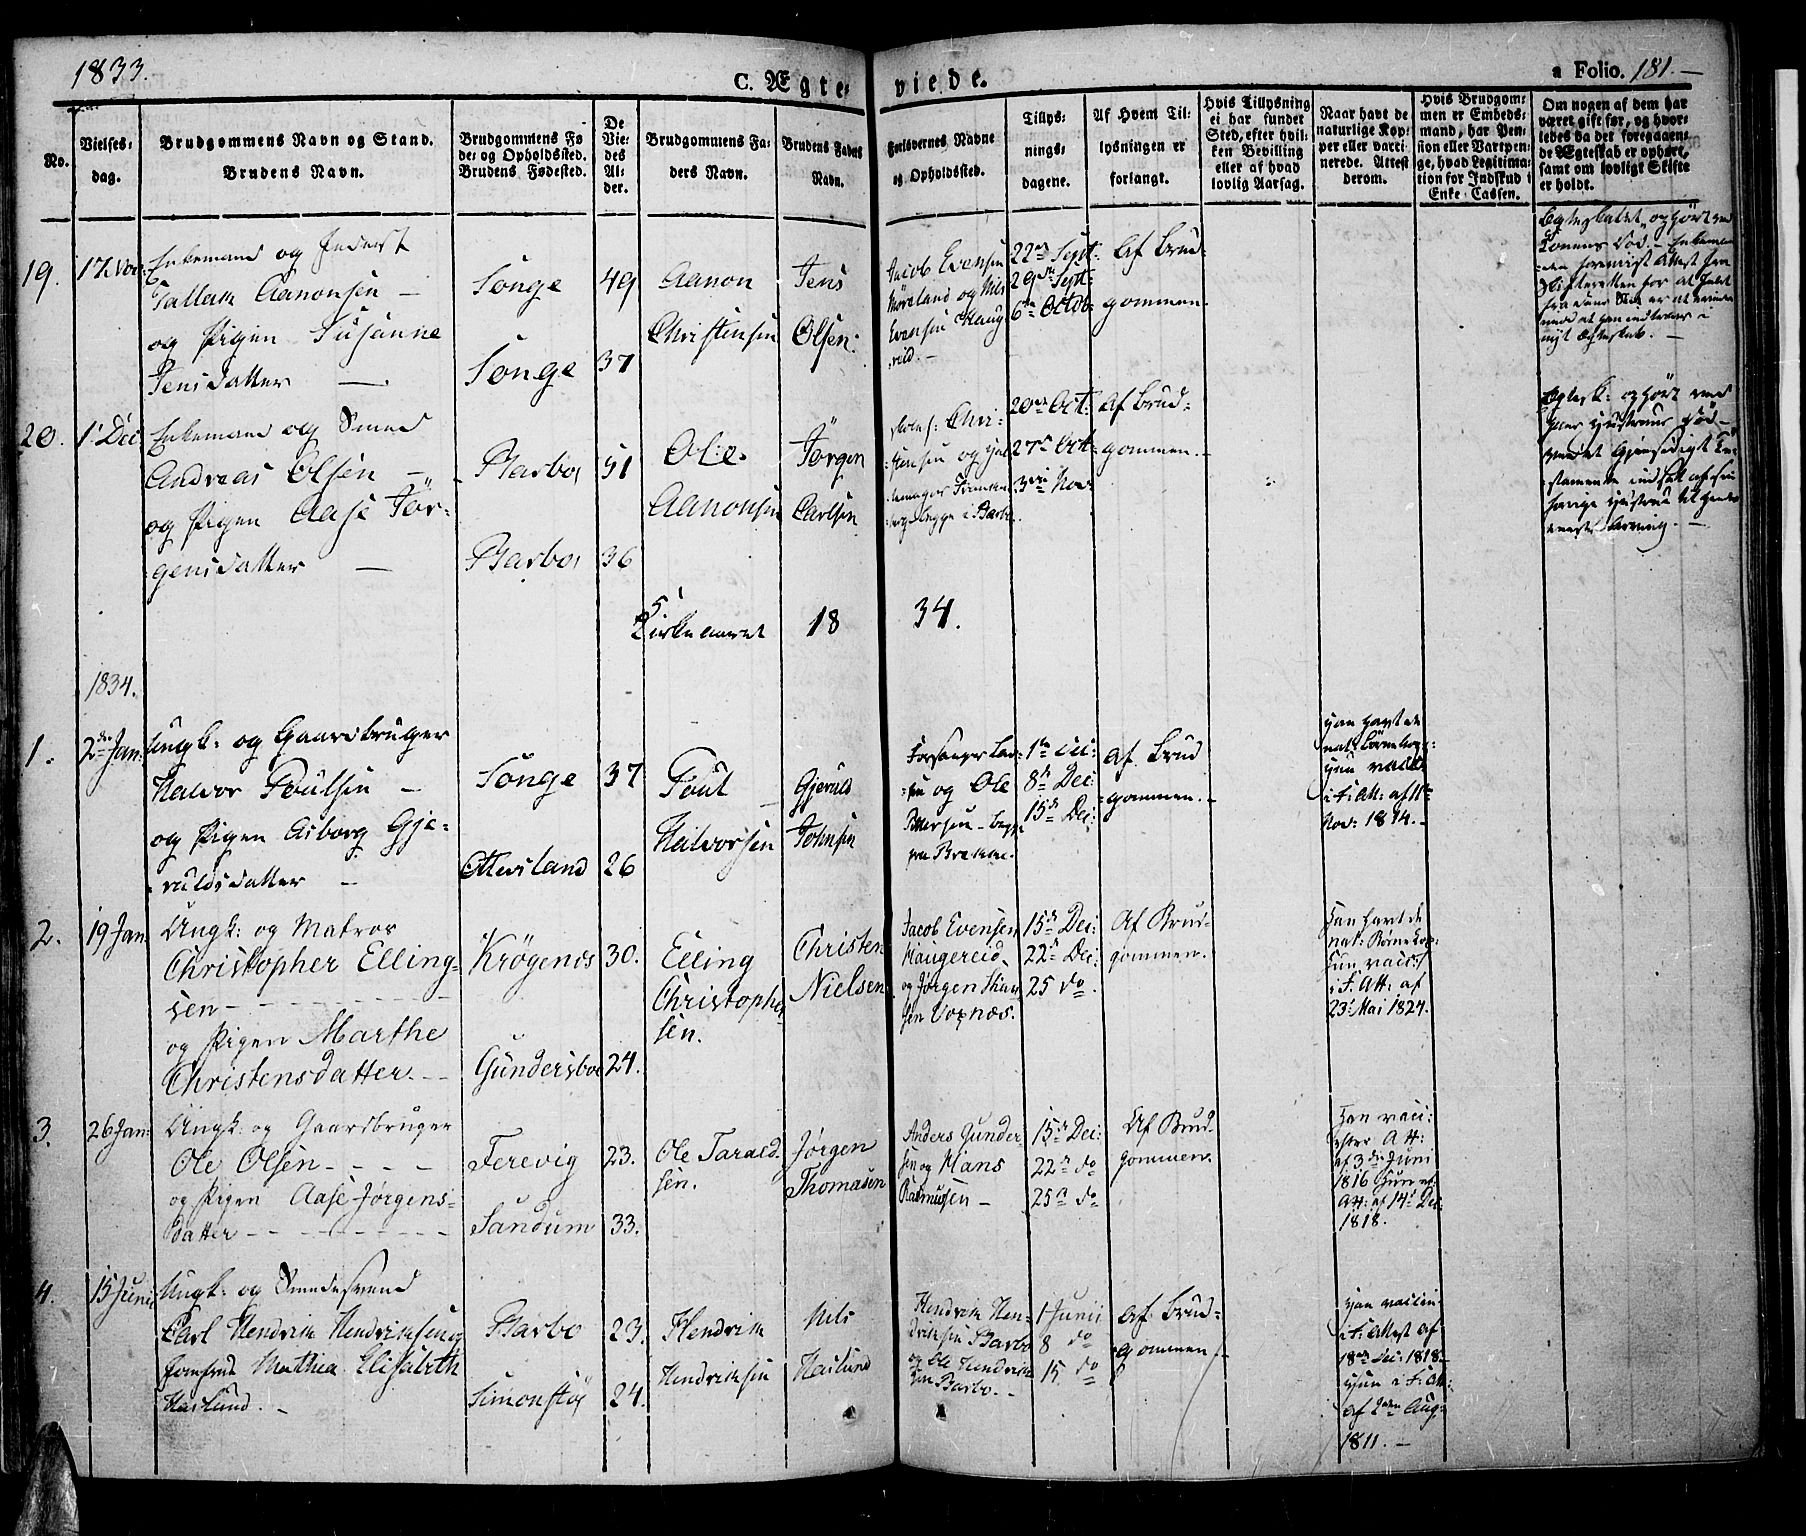 1833.
C. Ægte-
viede.
a Folio. 181.-
No.
Vielses-
dag.
Brudgommens Navn og Stand.
Brudens Navn.
Brudgommens Fø
de- og Opholdssted.
Brudens Fødested.
De
Vie-
des
Al-
der.
Brudgommens Fa-
ders Navn.
Brudens Faders
Navn.
Forlovernes Navne
og Opholdssted.
Tillys-
nings-
dagene.
Af Hvem Til-
lysningen er
forlangt.
Hvis Tillysning
ei har fundet
Sted, efter hvil-
ken Bevilling
eller af hvad
lovlig Aarsag.
Naar havt de
naturlige Kop-
per eller vacci-
nerede. Attest
derom.
Hvis Brudgom-
men er Embeds-
mand, har Pen-
sion eller Vartpen-
ge, hvad Legitima-
tion for Indskud i
Enke-Cassen.
Om nogen af dem har
været gift før, og hvor-
ledes da det foregaaen-
de Ægteskab er ophørt,
samt om lovligt Skifte
er holdt.
19.
17. Nov:
Enkemand og Inderst
Tallak Aanonsen -
og Pigen Susanne
Jensdatter -
Songe
Songe
49
37
Aanon
Christensen
Jens
Olsen.
Jacob Evensen
og Nils
Evensen Haug-
reid. -
22de Sept:
29de Sept:
6te Octob:
Af Brud-
gommen.
Egteskabet ophørt ved
Konens Død. - Enkeman-
den foreviist Attest fra
Skifteretten for at Intet
fra dens Side er at erindre
mod at han indtræder i
nyt Egteskab. -
20.
1' Dec
Enkemand og Smed
Andreas Olsen -
og Pigen Aase Jör-
gensdatter -
Barbo
Barbo
51
36
Ole
Aanonsen
Jörgen
Carlsen
Chri-
stensen og
begge i Barbo.
20de Oct:
27de Oct:
3die Nov:
Af Brud-
gommen. -
Egtesk: ophört ved
hans Hustrues Död -
Ved et Gjensidigt Te-
stamente indsat af sin
forrige Hustru til hendes
eneste Arving. -
5'
Kirkeaaret 18 34.
1834.
1.
2den Jan:
Ungk: og Gaardbruger
Halvor Poulsen -
og Pigen Asborg Gje-
ruldsdatter -
Songe
Ottersland
37
26
Poul
Halvorsen
Gjeruld
Johnsen
Forsanger Lar-
sen og Ole
Pettersen - begge
paa Brække.
1te Dec:
8de Dec:
15de Dec:
Af Brud
gommen. -
Han havt de
nat: Börnekop:
Hun vacc:
i F. Att: af 11te
Nov: 1814. -
2.
19 Jan:
Ungk: og Matros
Christopher Elling-
sen -
og Pigen Marthe
Christensdatter. -
Krøgenes
Gundersboe
30.
24.
Elling
Christopher-
sen.
Christen
Nielsen
Jacob Evensen
Haugereid
og Jørgen
sen Voxnæs.
15de Dec:
22de Dec:
25 do
Af Brud-
gommen.
Han havt de
nat: Børnekop:
Hun vacc:
i F. Att: af
23' Mai 1824.
3.
26 Jan:
Ungk: og Gaardbruger
Ole Olsen -
og Pigen Aase Jørgens-
datter -
Ferevig
Sandum
23.
33.
Ole Tarald-
sen.
Jørgen
Thomasen
Anders Gunder-
sen og Hans
Rasmussen -
15de Dec:
22de do
25de do
Af Brud-
gommen.
Han vacc:
efter Att:
af 3die Juni
1816 Hun ef:
Att: af 14' Dec:
1818.
4.
15 Junii
Ungk: og Smedesvend
Carl Hendrik Hendriksen og
Jomfrue Mathea Elisabeth
Haslund. -
Barbo
Simonstø
23.
24.
Hendrik
Hendriksen
Nils
Haslund
Hendrik Hen-
driksen Barbo
og Ole Hendrik-
sen Barbo. -
1 Junii
8 do
15. do
Af Brud-
gommen. -
Han vaccin:
i F: Attest af
18de Dec: 1818 -
Hun i F: Att:
af 2den Aug:
1811. -